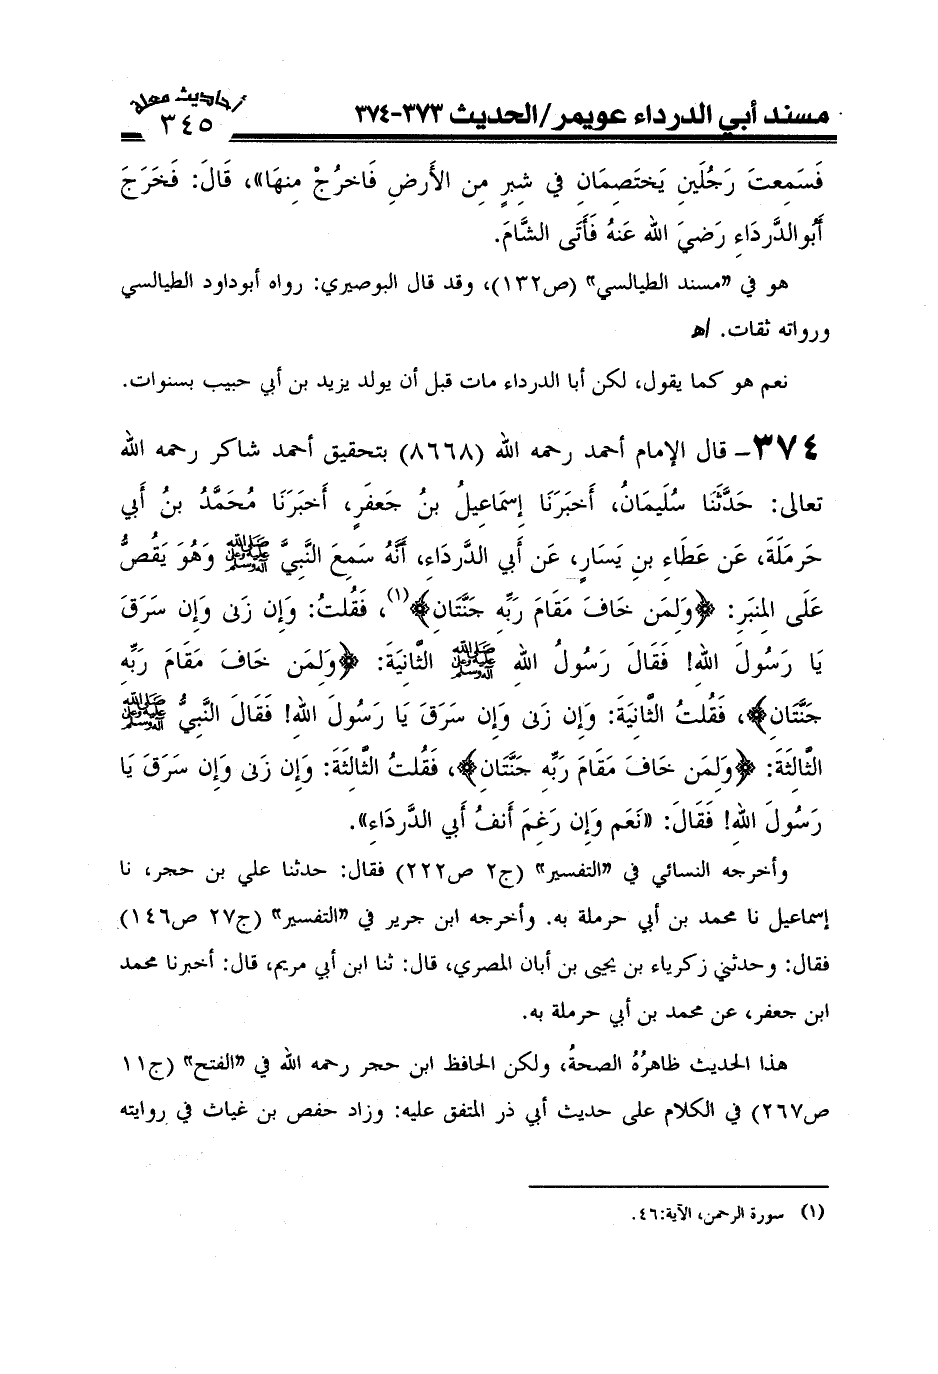 مسند أبي الدرداء عويمر/الحديث ٣٧٣-٣٧٤
أحاديث معلة
٣٤٥
فَسَمِعتَ رَجُلَينِ يَختَصِمَانِ فِي شِبرٍ مِن الأَرضِ فَاخرُجْ مِنهَا»، قَالَ: فَخَرَجَ
أَبُوالدَّردَاءِ رَضيَ اللهُ عَنهُ فَأَتَى الشَّامَ.
هو في «مسند الطيالسي» (ص١٣٢)، وقد قال البوصيري: رواه أبوداود الطيالسي
ورواته ثقات. اﻫ
نعم هو كما يقول، لكن أبا الدرداء مات قبل أن يولد يزيد بن أبي حبيب بسنوات.
٣٧٤- قال الإمام أحمد رحمه الله (٨٦٦٨) بتحقيق أحمد شاكر رحمه الله
تعالى: حَدَّثَنَا سُلَيمَانُ، أَخبَرَنَا إِسمَاعِيلُ بنُ جَعفَرٍ، أَخبَرَنَا مُحَمَّدُ بنُ أَبي
حَرمَلَةَ، عَن عَطَاءِ بنِ يَسَارٍ، عَن أَبي الدَّردَاءِ، أَنَّهُ سَمِعَ النَّبيَّ ﷺ وَهُوَ يَقُصُّ
عَلَى المِنبَرِ: ﴿وَلِمَن خَافَ مَقَامَ رَبِّهِ جَنَّتَانِ﴾(١)، فَقُلتُ: وَإِن زَنَى وَإِن سَرَقَ
يَا رَسُولَ اللهِ! فَقَالَ رَسُولُ اللهِ ﷺ الثَّانِيَةَ: ﴿وَلِمَن خَافَ مَقَامَ رَبِّهِ
جَنَّتَانِ﴾، فَقُلتُ الثَّانِيَةَ: وَإِن زَنَى وَإِن سَرَقَ يَا رَسُولَ اللهِ! فَقَالَ النَّبيُّ ﷺ
الثَّالِثَةَ: ﴿وَلِمَن خَافَ مَقَامَ رَبِّهِ جَنَّتَانِ﴾، فَقُلتُ الثَّالِثَةَ: وَإِن زَنَى وَإِن سَرَقَ يَا
رَسُولَ اللهِ! فَقَالَ: «نَعَم وَإِن رَغِمَ أَنفُ أَبي الدَّردَاءِ».
وأخرجه النسائي في «التفسير» (ج٢ ص٢٢٢) فقال: حدثنا علي بن حجر، نا
إسماعيل نا محمد بن أبي حرملة به. وأخرجه ابن جرير في «التفسير» (ج٢٧ ص١٤٦)
فقال: وحدثني زكرياء بن يحيى بن أبان المصري، قال: ثنا ابن أبي مريم، قال: أخبرنا محمد
ابن جعفر، عن محمد بن أبي حرملة به.
هذا الحديث ظاهرُهُ الصحةُ، ولكن الحافظ ابن حجر رحمه الله في «الفتح» (ج١١
ص٢٦٧) في الكلام على حديث أبي ذر المتفق عليه: وزاد حفص بن غياث في روايته
(١) سورة الرحمن، الآية:٤٦.